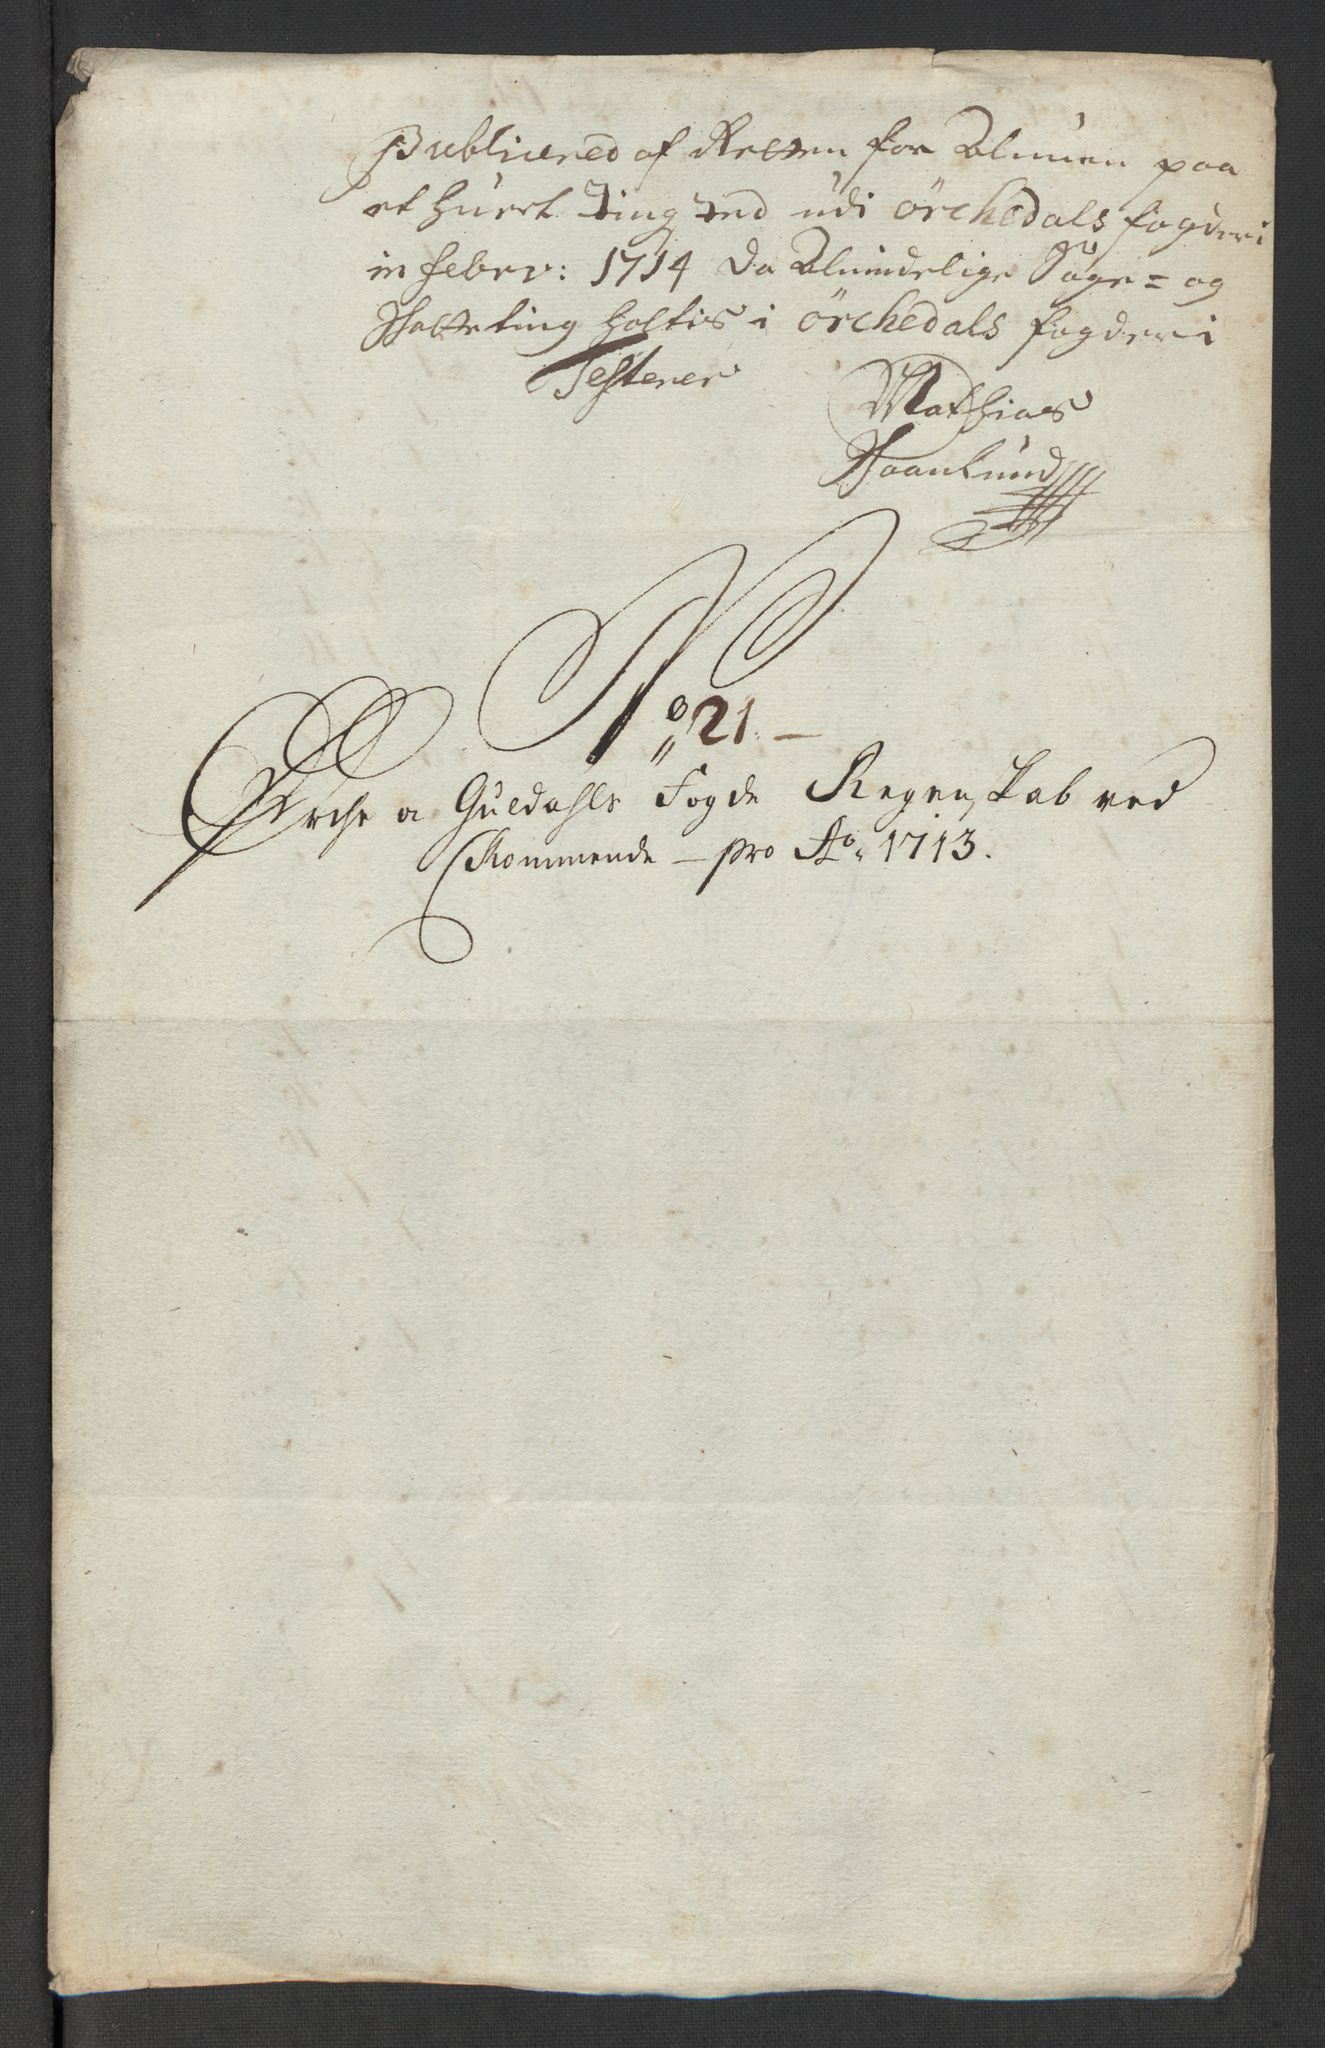 Publicered af Retten for Almuen paa
et huert Ting sted udi örchedals fogderi
in febrv: 1714 da Almindelige Sage= og
Skatteting holtis i örchedals fogderi
Testerer Mathias
N„o 21. —
Örche a Guldahls Fogde Regenskab ved
Kommende — pro Ao. 1713.